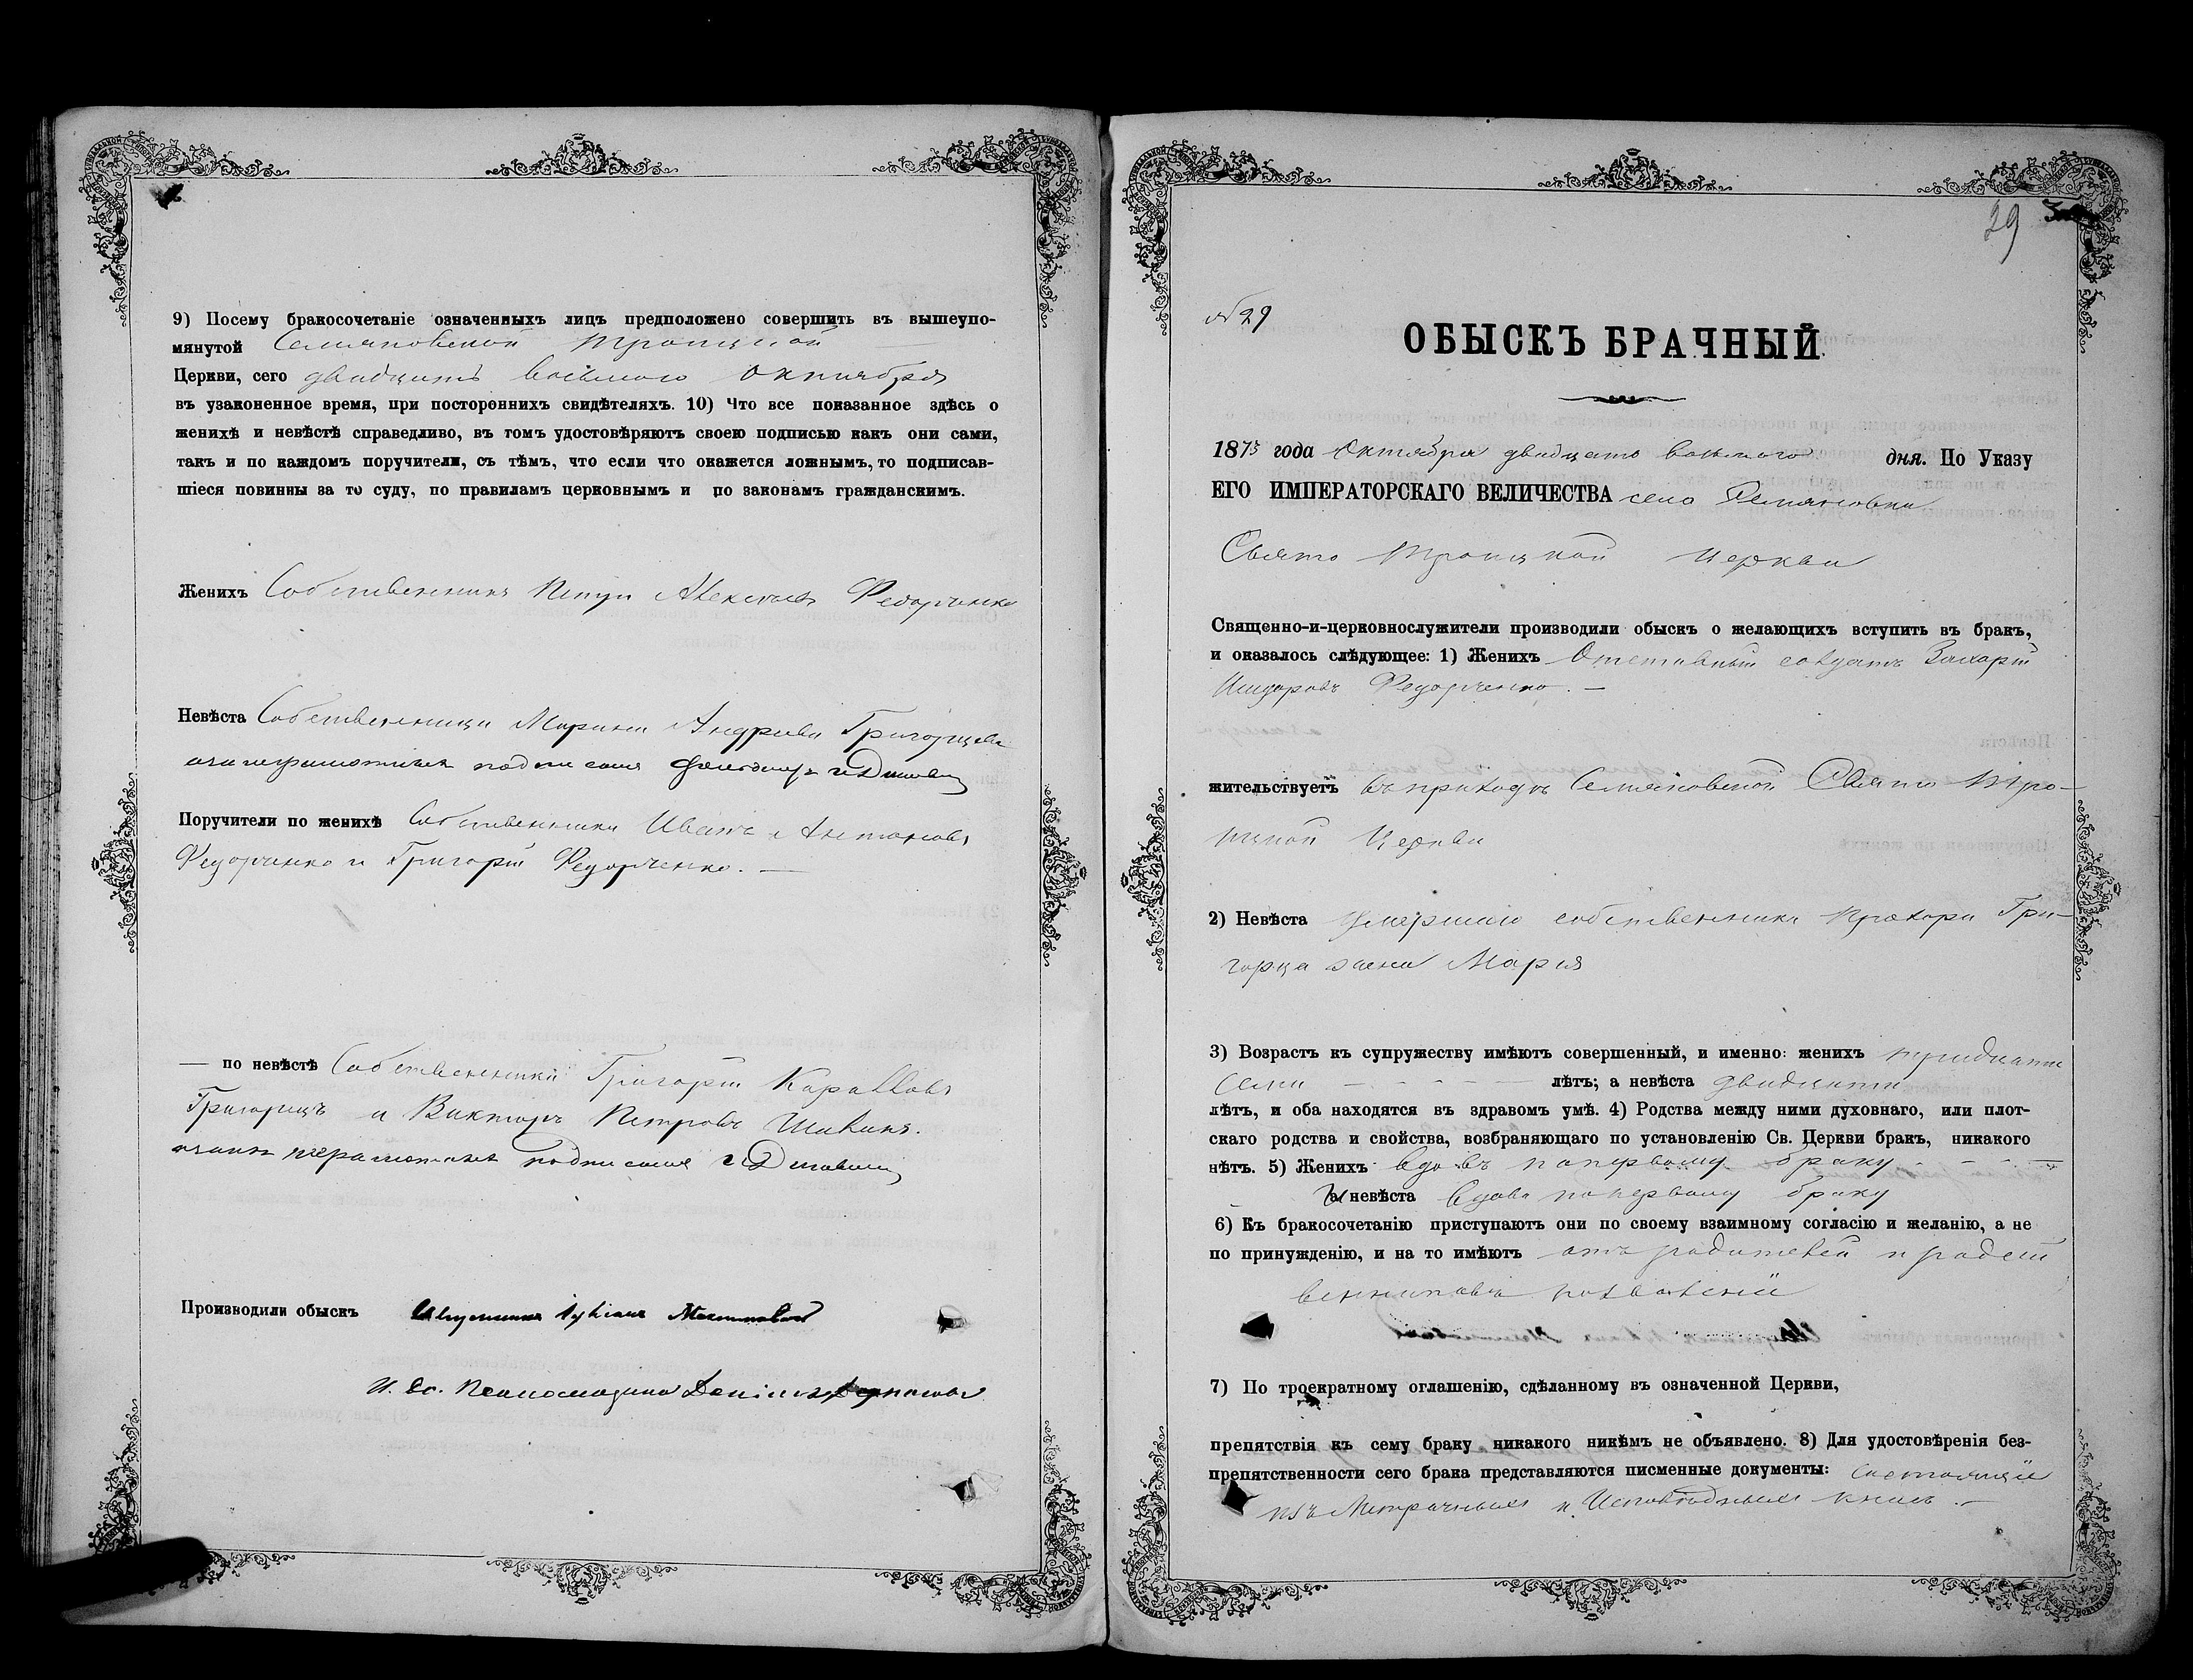 9) Посему бракосочетаніе означенныхъ лицъ предположено совершить въ вышеупо-
мянутой Семяновской Троицкой
Церкви, сего двадцять восьмого Октября
въ узаконенное время, при постороннихъ свидѣтеляхъ. 10) Что все показанное здѣсь о
женихѣ и невѣстѣ справедливо, въ томъ удостовѣряютъ своею подписью какъ они сами,
такъ и по каждомъ поручители, съ тѣмъ, что если что окажется ложнымъ, то подписав-
шіеся повинны за то суду, по правиламъ церковнымъ и по законамъ гражданскимъ.
Женихъ Собственникъ Алексѣевъ Федорченко
Невѣста Собственница Марина Андреева
Поручители по женихѣ Собственники Иванъ Антоновъ
Федорченко и Григорій Федорченко. —
— по невѣстѣ Собственники Григорій Карповъ
Григорецъ и Викторъ Петровъ
Производили обыскъ
И. до. Псаломщика
29
№ 29
ОБЫСКЪ БРАЧНЫЙ.
1875 года Октября двадцать восьмого дня. По Указу
ЕГО ИМПЕРАТОРСКАГО ВЕЛИЧЕСТВА село Семяновки
Свято Троицкой церкви
Священно-и-церковнослужители производили обыскъ о желающихъ вступить въ бракъ,
и оказалось слѣдующее: 1) Женихъ Отставный солдатъ Захарій
Федорченко. —
жительствуетъ въ приходѣ Семяновской Свято Тро-
ицкой Церкви
2) Невѣста умершаго собственника Прохора Гри-
горца жена Марія
3) Возрастъ къ супружеству имѣютъ совершенный, и именно: женихъ тридцати
семи лѣтъ; а невѣста двадцати
лѣтъ, и оба находятся въ здравомъ умѣ. 4) Родства между ними духовнаго, или плот-
скаго родства и свойства, возбраняющаго по установленію Св. Церкви бракъ, никакого
нѣтъ. 5) Женихъ вдовъ по первому браку
и невѣста вдова по первому браку
6) Къ бракосочетанію приступаютъ они по своему взаимному согласію и желанію, а не
по принужденію, и на то имѣютъ отъ родителей и родст
венниковъ позволеніе
7) По троекратному оглашенію, сдѣланному въ означенной Церкви,
препятствія къ сему браку никакого никѣмъ не объявлено. 8) Для удостовѣренія без-
препятственности сего брака представляются писменные документы:
изъ Метричныхъ и Исповѣдныхъ книгъ. —